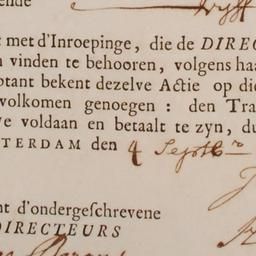 ende
t met d'Inroepinge, die de DIREC
n vinden te behooren, volgens haa
ptant bekent dezelve Actie op die
volkomen genoegen : den Tra
ve voldaan en betaalt te zyn, du
STERDAM den 4 Septb^r
nt d'ondergeſchrevene
DIRECTEURS